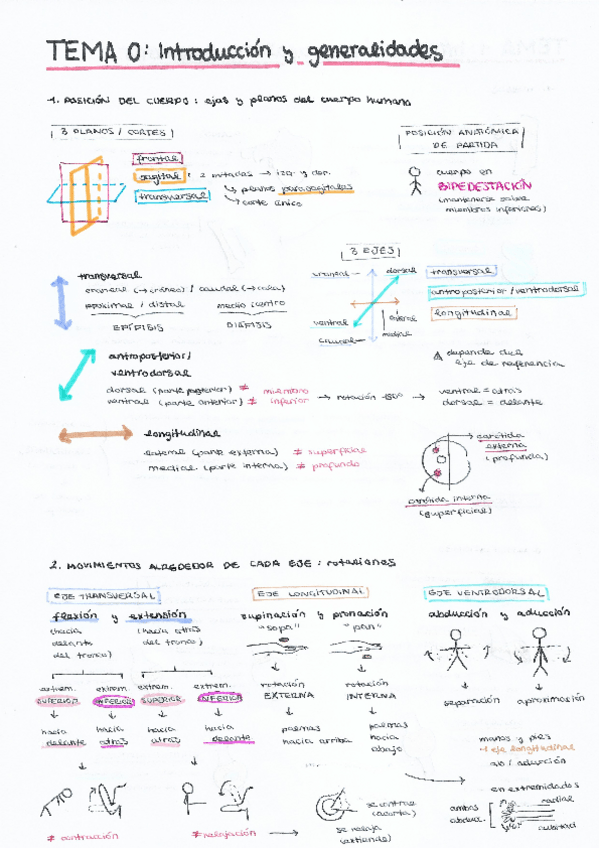 TEMA 0: Introducción y generalidades
1. POSICIÓN DEL CUERPO: ejes y planos del cuerpo humano
3 PLANOS / CORTES
frontal
sagital: 2 mitades → izq. y der.
↳ planos parasagitales
↳ corte único
transversal
POSICIÓN ANATÓMICA
DE PARTIDA
cuerpo en
BIPEDESTACIÓN
(mantenerse sobre
miembros inferiores)
transversal
craneal (→ cráneo) / caudal (→ cola)
proximal / distal
medio centro
EPÍFISIS
DIÁFISIS
3 EJES
craneal
dorsal
lateral
ventral
medial
caudal
transversal
antroposterior / ventrodorsal
longitudinal
⚠ depende del
eje de referencia
antroposterior /
ventrodorsal
dorsal (parte posterior) ≠ miembro
ventral (parte anterior) ≠ inferior
→ rotación 180° →
ventral = atrás
dorsal = delante
longitudinal
lateral (parte externa) ≠ superficial
medial (parte interna) ≠ profundo
carótida
externa
(profunda)
carótida interna
(superficial)
2. MOVIMIENTOS ALREDEDOR DE CADA EJE: rotaciones
EJE TRANSVERSAL
flexión y extensión
(hacia
delante
del tronco)
(hacia atrás
del tronco)
extrem.
SUPERIOR
↓
hacia
delante
extrem.
INFERIOR
↓
hacia
atrás
extrem.
SUPERIOR
↓
hacia
atrás
extrem.
INFERIOR
↓
hacia
delante
≠ contracción
≠ relajación →
EJE LONGITUDINAL
supinación y pronación
"sopa"
"pan"
rotación
EXTERNA
↓
palmas
hacia arriba
rotación
INTERNA
↓
palmas
hacia
abajo
...
se contrae
(acorta)
se relaja
(extiende)
EJE VENTRODORSAL
abducción y aducción
separación
aproximación
manos y pies
→ eje longitudinal
en extremidades
radial